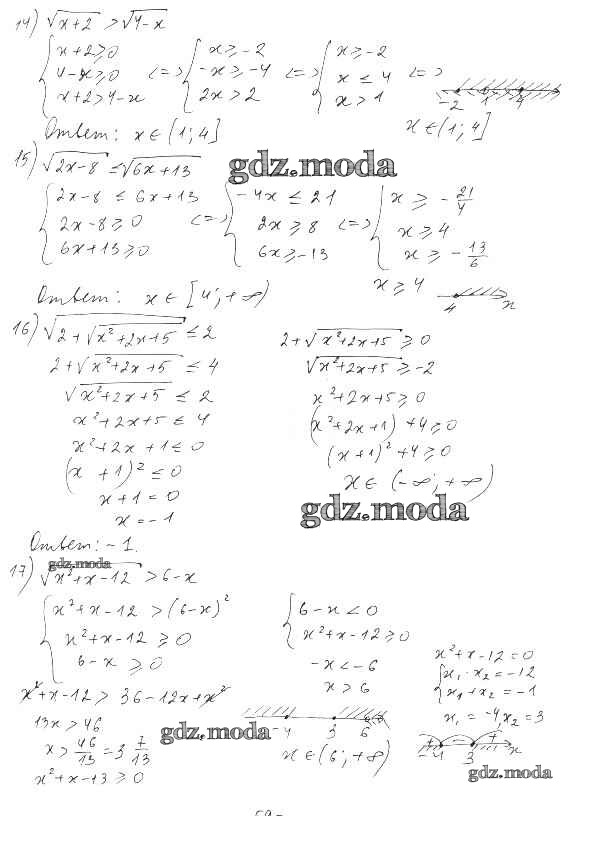 14) √(x+2) > √(4-x)
{ x+2 ≥ 0 <=> { x ≥ -2 <=> { x ≥ -2 <=>
{ 4-x ≥ 0 { -x ≥ -4 { x ≤ 4
{ x+2 > 4-x { 2x > 2 { x > 1
-2 1 4
Ответ: x ∈ (1; 4] x ∈ (1; 4]
15) √(2x-8) ≤ √(6x+13)
gdz.moda
{ 2x-8 ≤ 6x+13 <=> { -4x ≤ 21 <=> { x ≥ -21/4
{ 2x-8 ≥ 0 { 2x ≥ 8 { x ≥ 4
{ 6x+13 ≥ 0 { 6x ≥ -13 { x ≥ -13/6
x ≥ 4
4 x
Ответ: x ∈ [4; +∞)
16) √(2+√(x²+2x+5)) ≤ 2
2+√(x²+2x+5) ≤ 4
√(x²+2x+5) ≤ 2
x²+2x+5 ≤ 4
x²+2x+1 ≤ 0
(x+1)² ≤ 0
x+1 = 0
x = -1
2+√(x²+2x+5) ≥ 0
√(x²+2x+5) ≥ -2
x²+2x+5 ≥ 0
(x²+2x+1)+4 ≥ 0
(x+1)²+4 ≥ 0
x ∈ (-∞; +∞)
gdz.moda
Ответ: -1.
gdz.moda
17) √(x²+x-12) > 6-x
{ x²+x-12 > (6-x)²
{ x²+x-12 ≥ 0
{ 6-x ≥ 0
x²+x-12 > 36-12x+x²
13x > 46
x > 46/13 = 3 7/13
x²+x-13 ≥ 0
{ 6-x < 0
{ x²+x-12 ≥ 0
-x < -6
x > 6
-4 3 6
x ∈ (6; +∞)
gdz.moda
x²+x-12 = 0
{ x₁·x₂ = -12
{ x₁+x₂ = -1
x₁ = -4, x₂ = 3
+ - + x
-4 3
gdz.moda